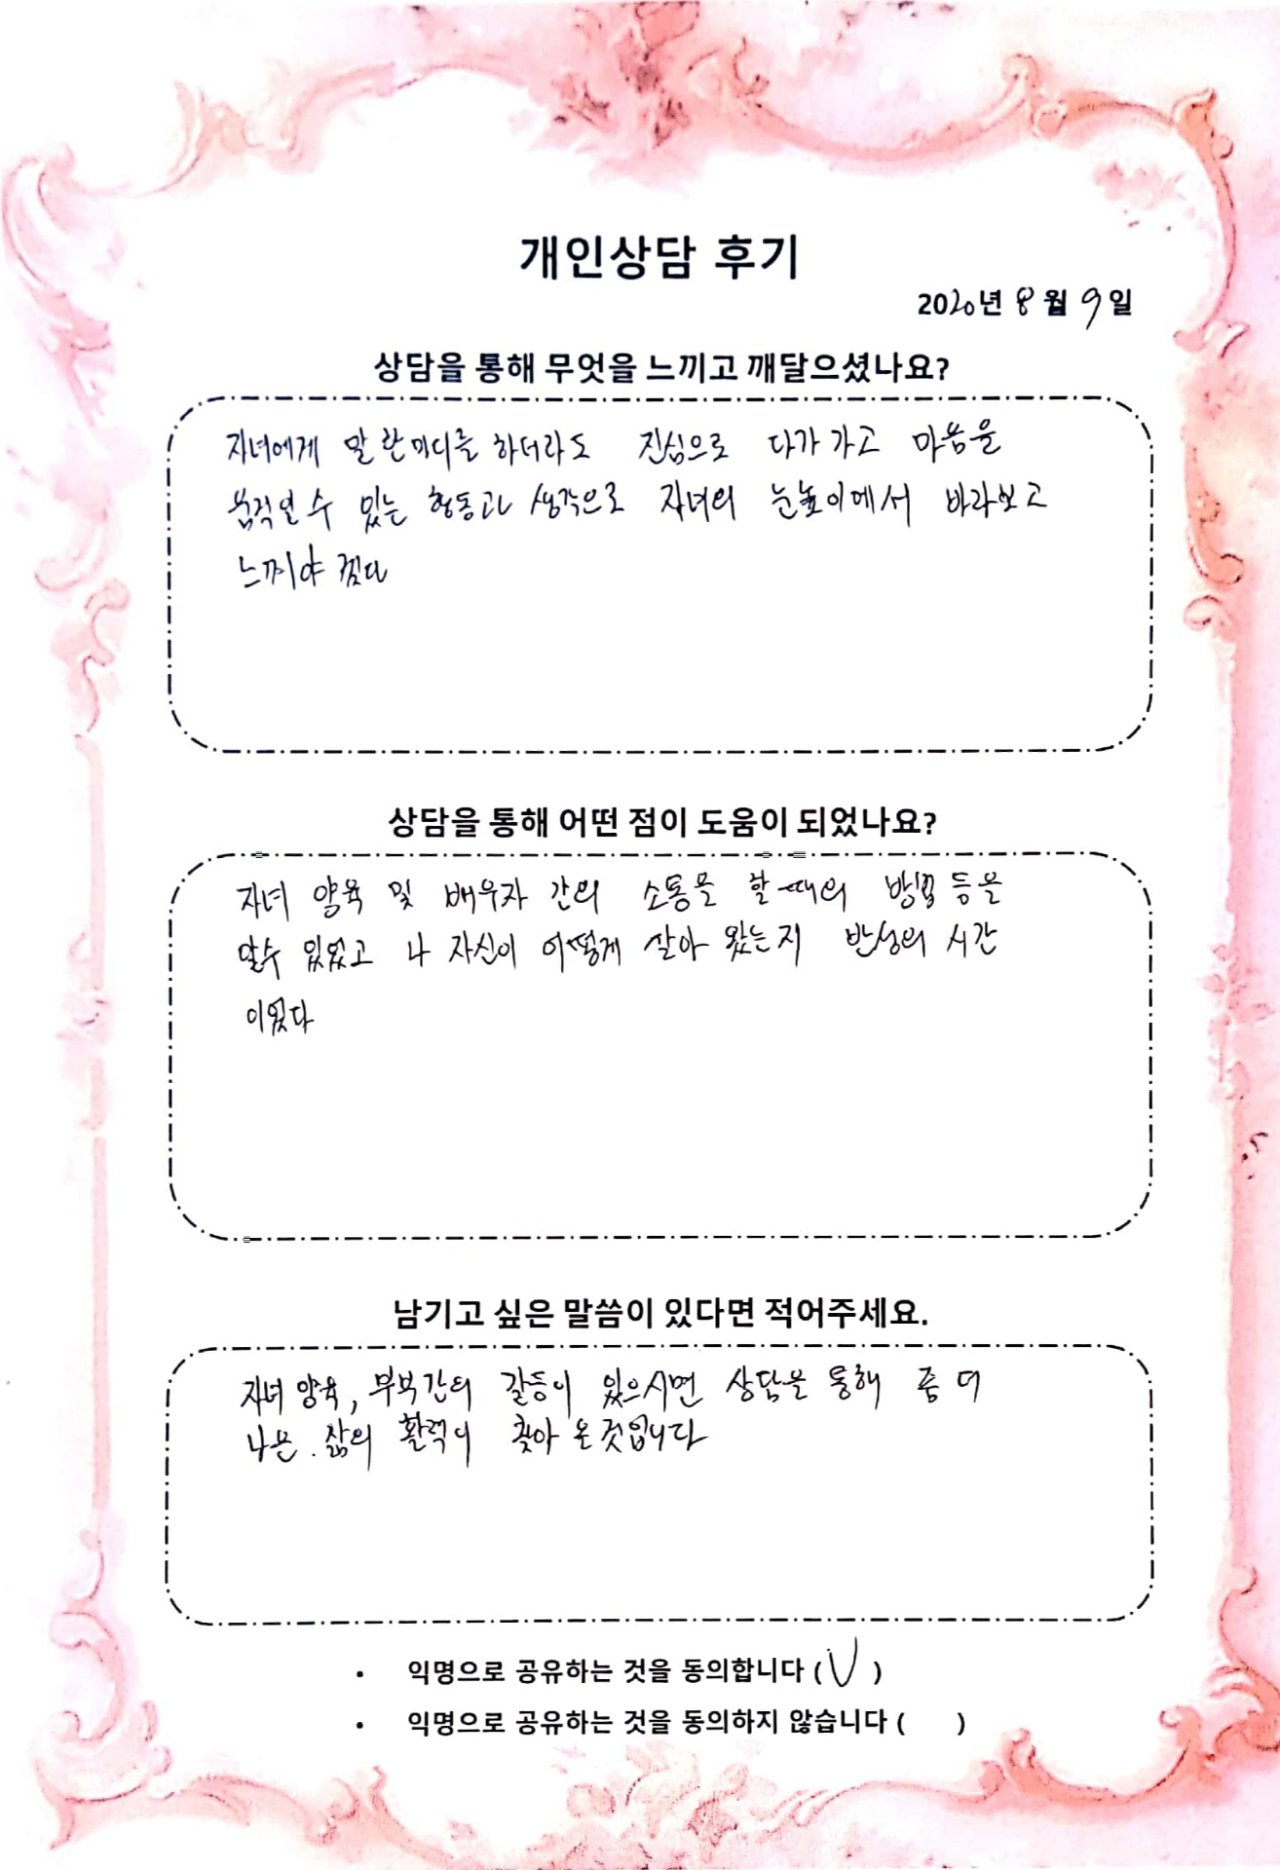 개인상담 후기
2020년 8월 9일
상담을 통해 무엇을 느끼고 깨달으셨나요?
자녀에게 말 한마디를 하더라도 진심으로 다가가고 마음을
움직일 수 있는 행동과 생각으로 자녀의 눈높이에서 바라보고
느껴야 겠다
상담을 통해 어떤 점이 도움이 되었나요?
자녀 양육 및 배우자 간의 소통을 할때의 방법등을
알수 있었고 나 자신이 어떻게 살아 왔는지 반성의 시간
이였다
남기고 싶은 말씀이 있다면 적어주세요.
자녀 양육, 부부간의 갈등이 있으시면 상담을 통해 좀 더
나은 삶의 활력이 찾아 온것입니다
• 익명으로 공유하는 것을 동의합니다 ( V )
• 익명으로 공유하는 것을 동의하지 않습니다 ( )